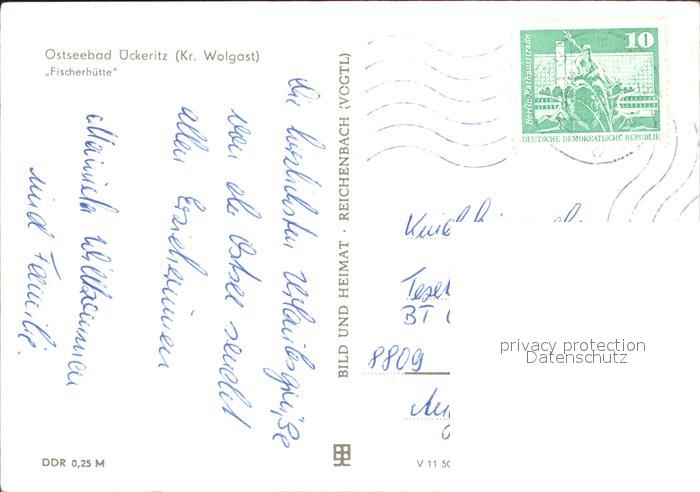 Ostseebad Ückeritz (Kr. Wolgast)
„Fischerhütte"
Die herzlichsten Urlaubsgrüße
von der Ostsee sendet
allen Erzieherinnen
und Familie.
BILD UND HEIMAT · REICHENBACH (VOGTL)
10
Berlin · Rathausstraße
DEUTSCHE DEMOKRATISCHE REPUBLIK
BT
8809
privacy protection
Datenschutz
DDR 0,25 M
V 11 50